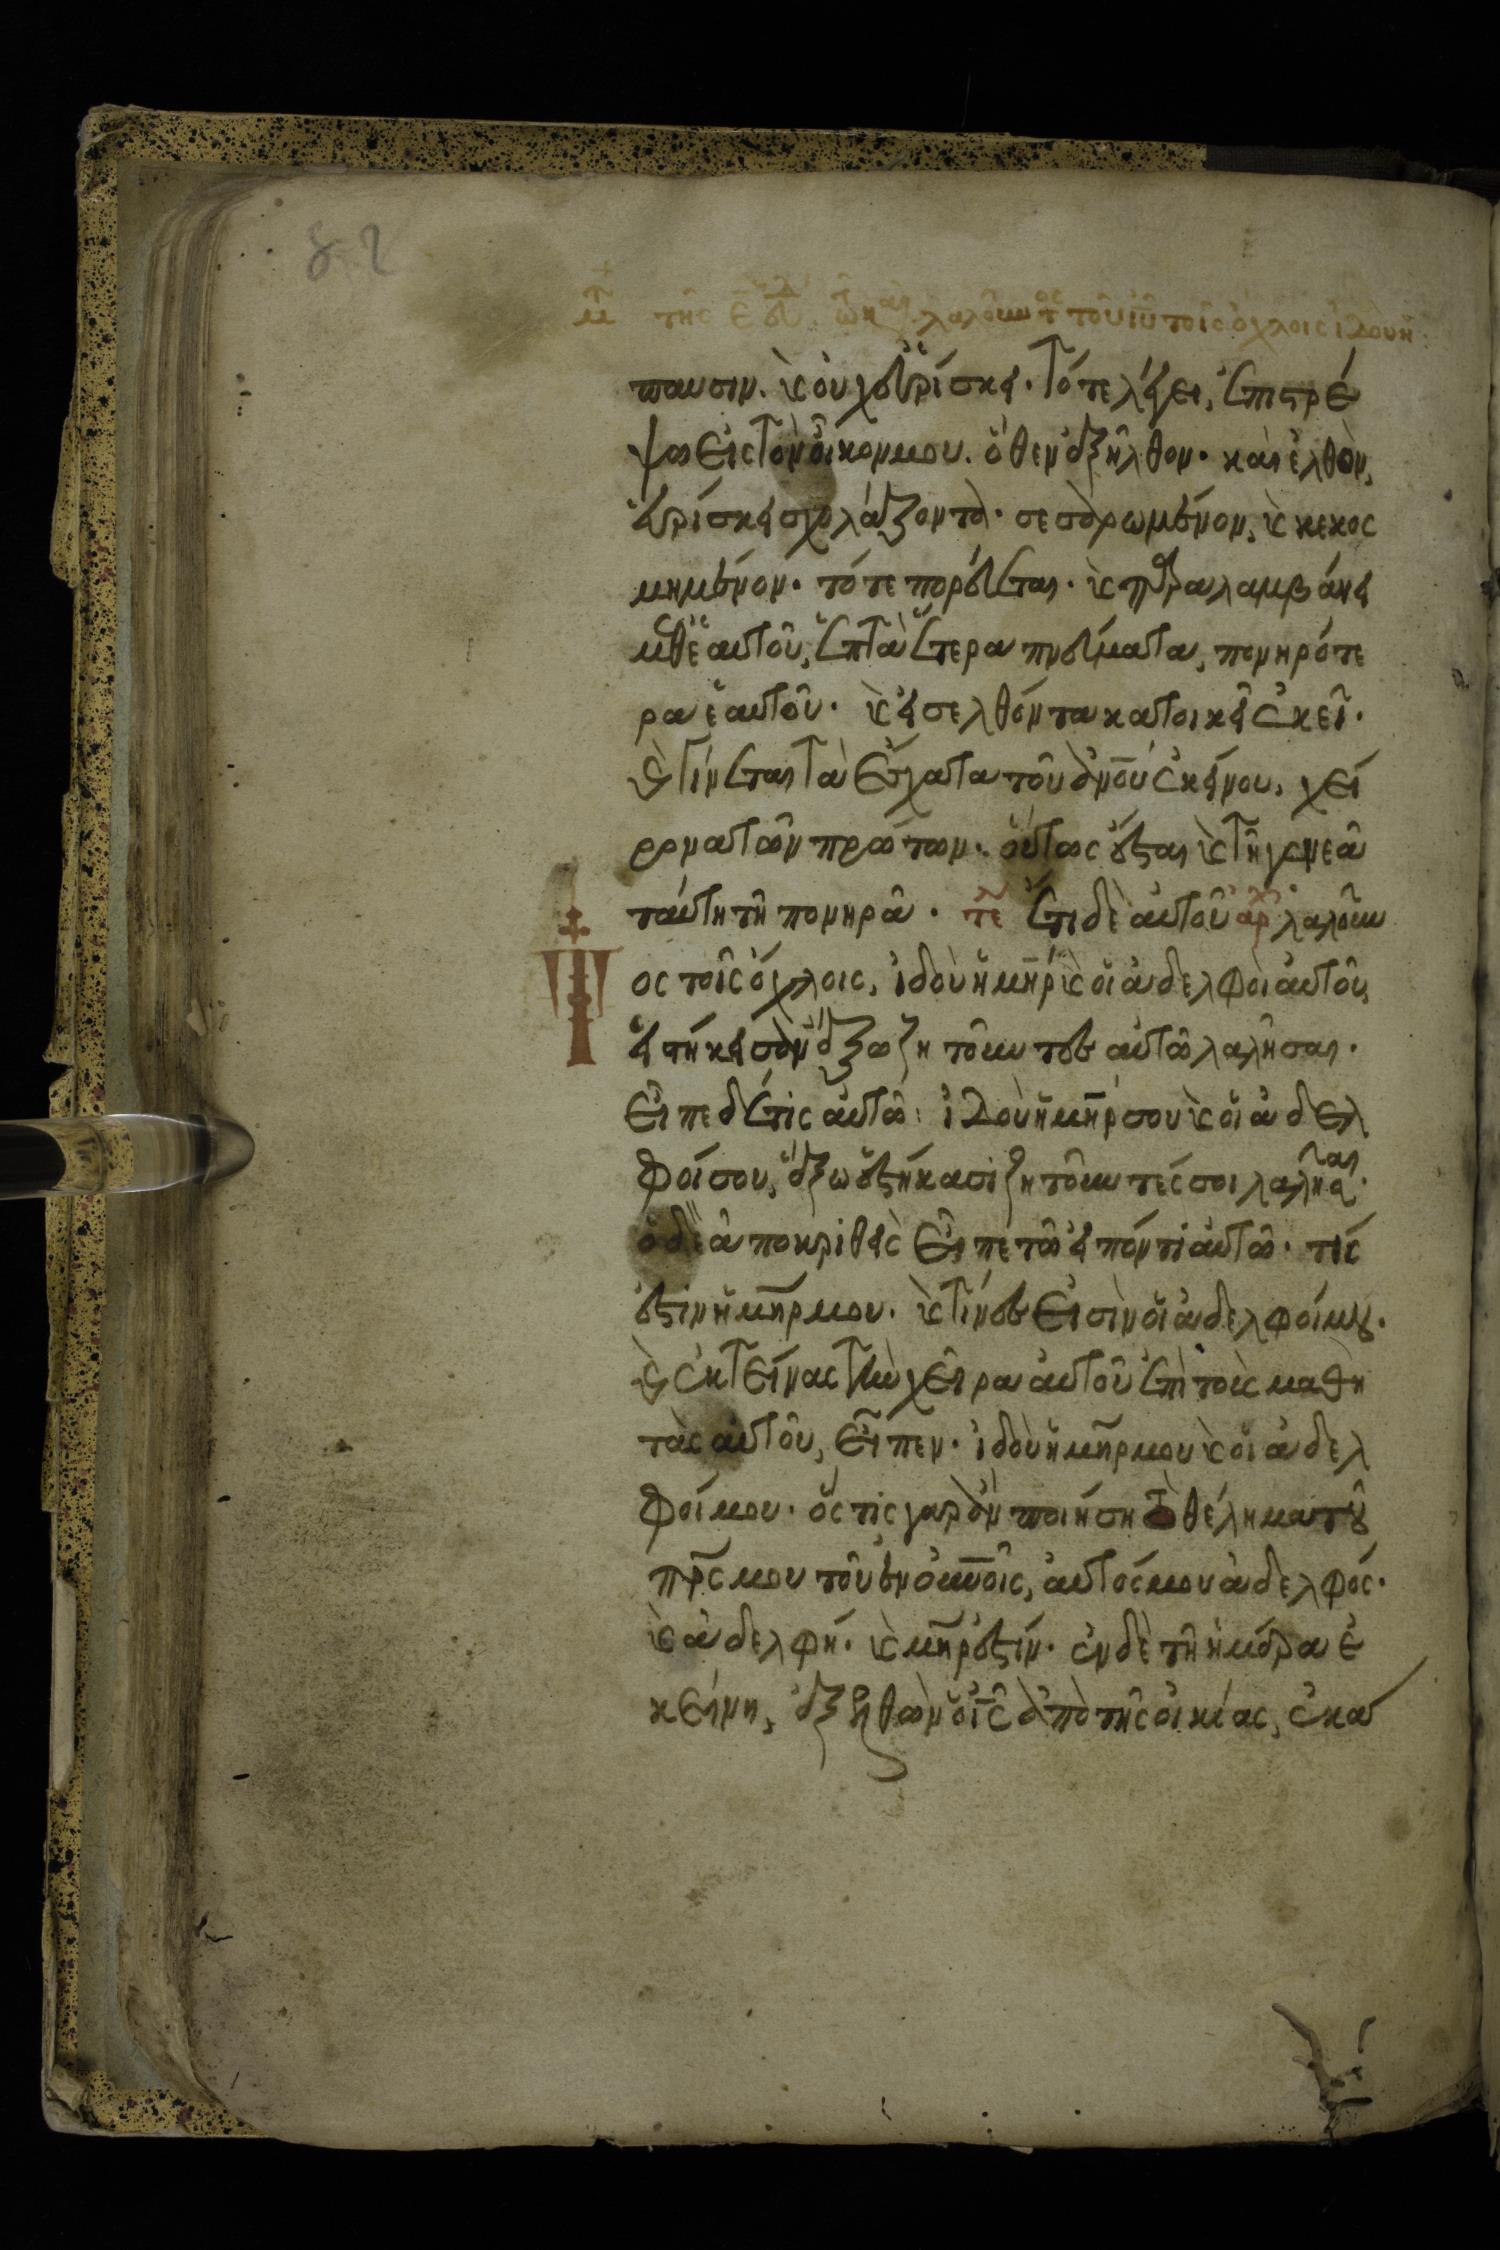 τῆς λαλοῦντος τοῦ ιυ τοῖς ὄχλοις ἰδοὺ ἡ
παυσιν. καὶ οὐχ εὑρίσκει. τότε λέγει, ἐπιστρέ
ψω εἰς τὸν οἶκον μου. ὅθεν ἐξῆλθον. καὶ ἐλθὸν,
εὑρίσκει σχολάζοντα. σεσαρωμένον, καὶ κεκοσ
μημένον. τότε πορεύεται. καὶ παραλαμβάνει
μεθ ἑαυτοῦ, ἑπτὰ ἕτερα πνεύματα, πονηρότε
ρα ἑαυτοῦ. καὶ εἰσελθόντα κατοικεῖ ἐκεῖ.
καὶ γίνεται τὰ ἔσχατα τοῦ ἀνου ἐκείνου, χεί
ρονα τῶν πρώτων. οὕτως ἔσται καὶ τῆ γενεᾶ
ταύτη τῆ πονηρᾶ. τε ἔτι δὲ αὐτοῦ αρχ λαλοῦντ
ος τοῖς ὄχλοις, ἰδοὺ ἡ μηρ καὶ οἱ ἀδελφοὶ αὐτοῦ,
εἱστήκεισαν ἔξω ζητοῦντες αὐτῶ λαλῆσαι.
εἶπε δέ τις αὐτῶ. ἰδοὺ ἡ μηρ σου καὶ οἱ ἀδελ
φοί σου, ἔξω ἑστήκασι ζητοῦντές σοι λαλῆσαι.
ὁ δὲ ἀποκριθεὶς εἶπε τῶ εἰπόντι αὐτῶ. τίς
ἐστιν ἡ μηρ μου. καὶ τίνες εἰσὶν οἱ ἀδελφοί μου.
καὶ ἐκτείνας τὴν χεῖρα αὐτοῦ ἐπὶ τοὺς μαθη
τὰς αὐτοῦ, εἶπεν. ἰδοὺ ἡ μηρ μου καὶ οἱ ἀδελ
φοί μου. ὅς τις γὰρ ἂν ποιήση τὸ θέλημα τοῦ
πρς μου τοῦ ἐν οὐνοῖς, αὐτός μου ἀδελφός.
καὶ ἀδελφή. καὶ μηρ ἐστίν. ἐν δὲ τῆ ἡμέρα ἐ
κείνη, ἐξελθὼν ὁ ις ἀπὸ τῆς οἰκίας, ἐκα